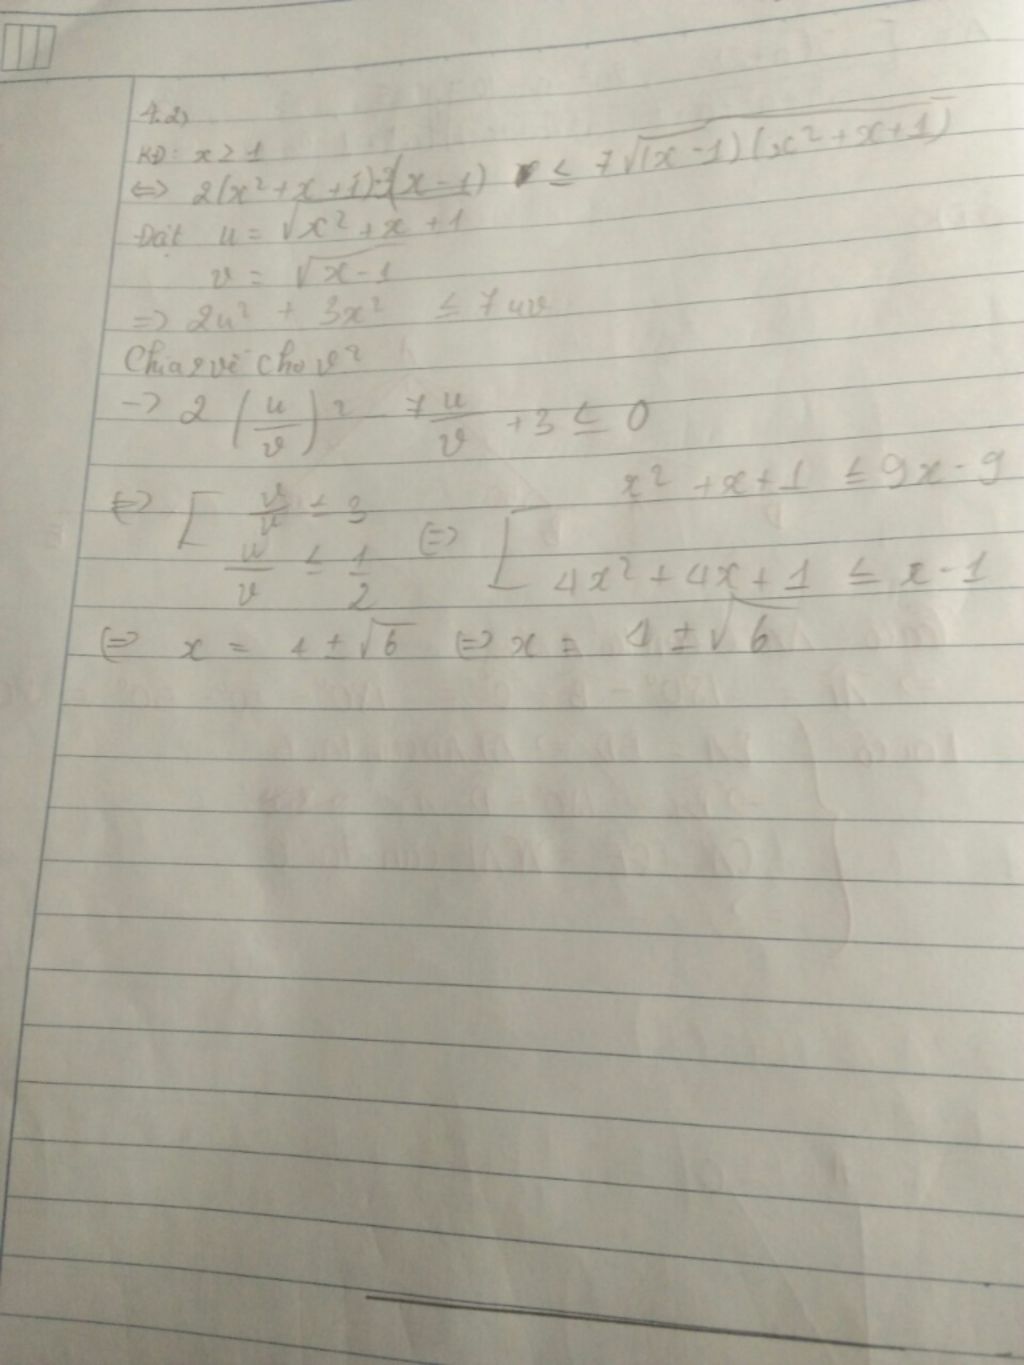 1.2)
KĐ: x ≥ 1
⇔ 2(x² + x + 1) + 3(x - 1) ≤ 7√(x - 1)(x² + x + 1)
Đặt u = √x² + x + 1
v = √x - 1
⇒ 2u² + 3x² ≤ 7uv
Chia 2 vế cho v²
→ 2 (u/v)² - 7 u/v + 3 ≤ 0
x² + x + 1 ≤ 9x - 9
⇔ [ ≤ 3
u/v ≤ 1/2 ⇔ [ 4x² + 4x + 1 ≤ x - 1
⇔ x = 4 ± √6 ⇔ x = 4 ± √6